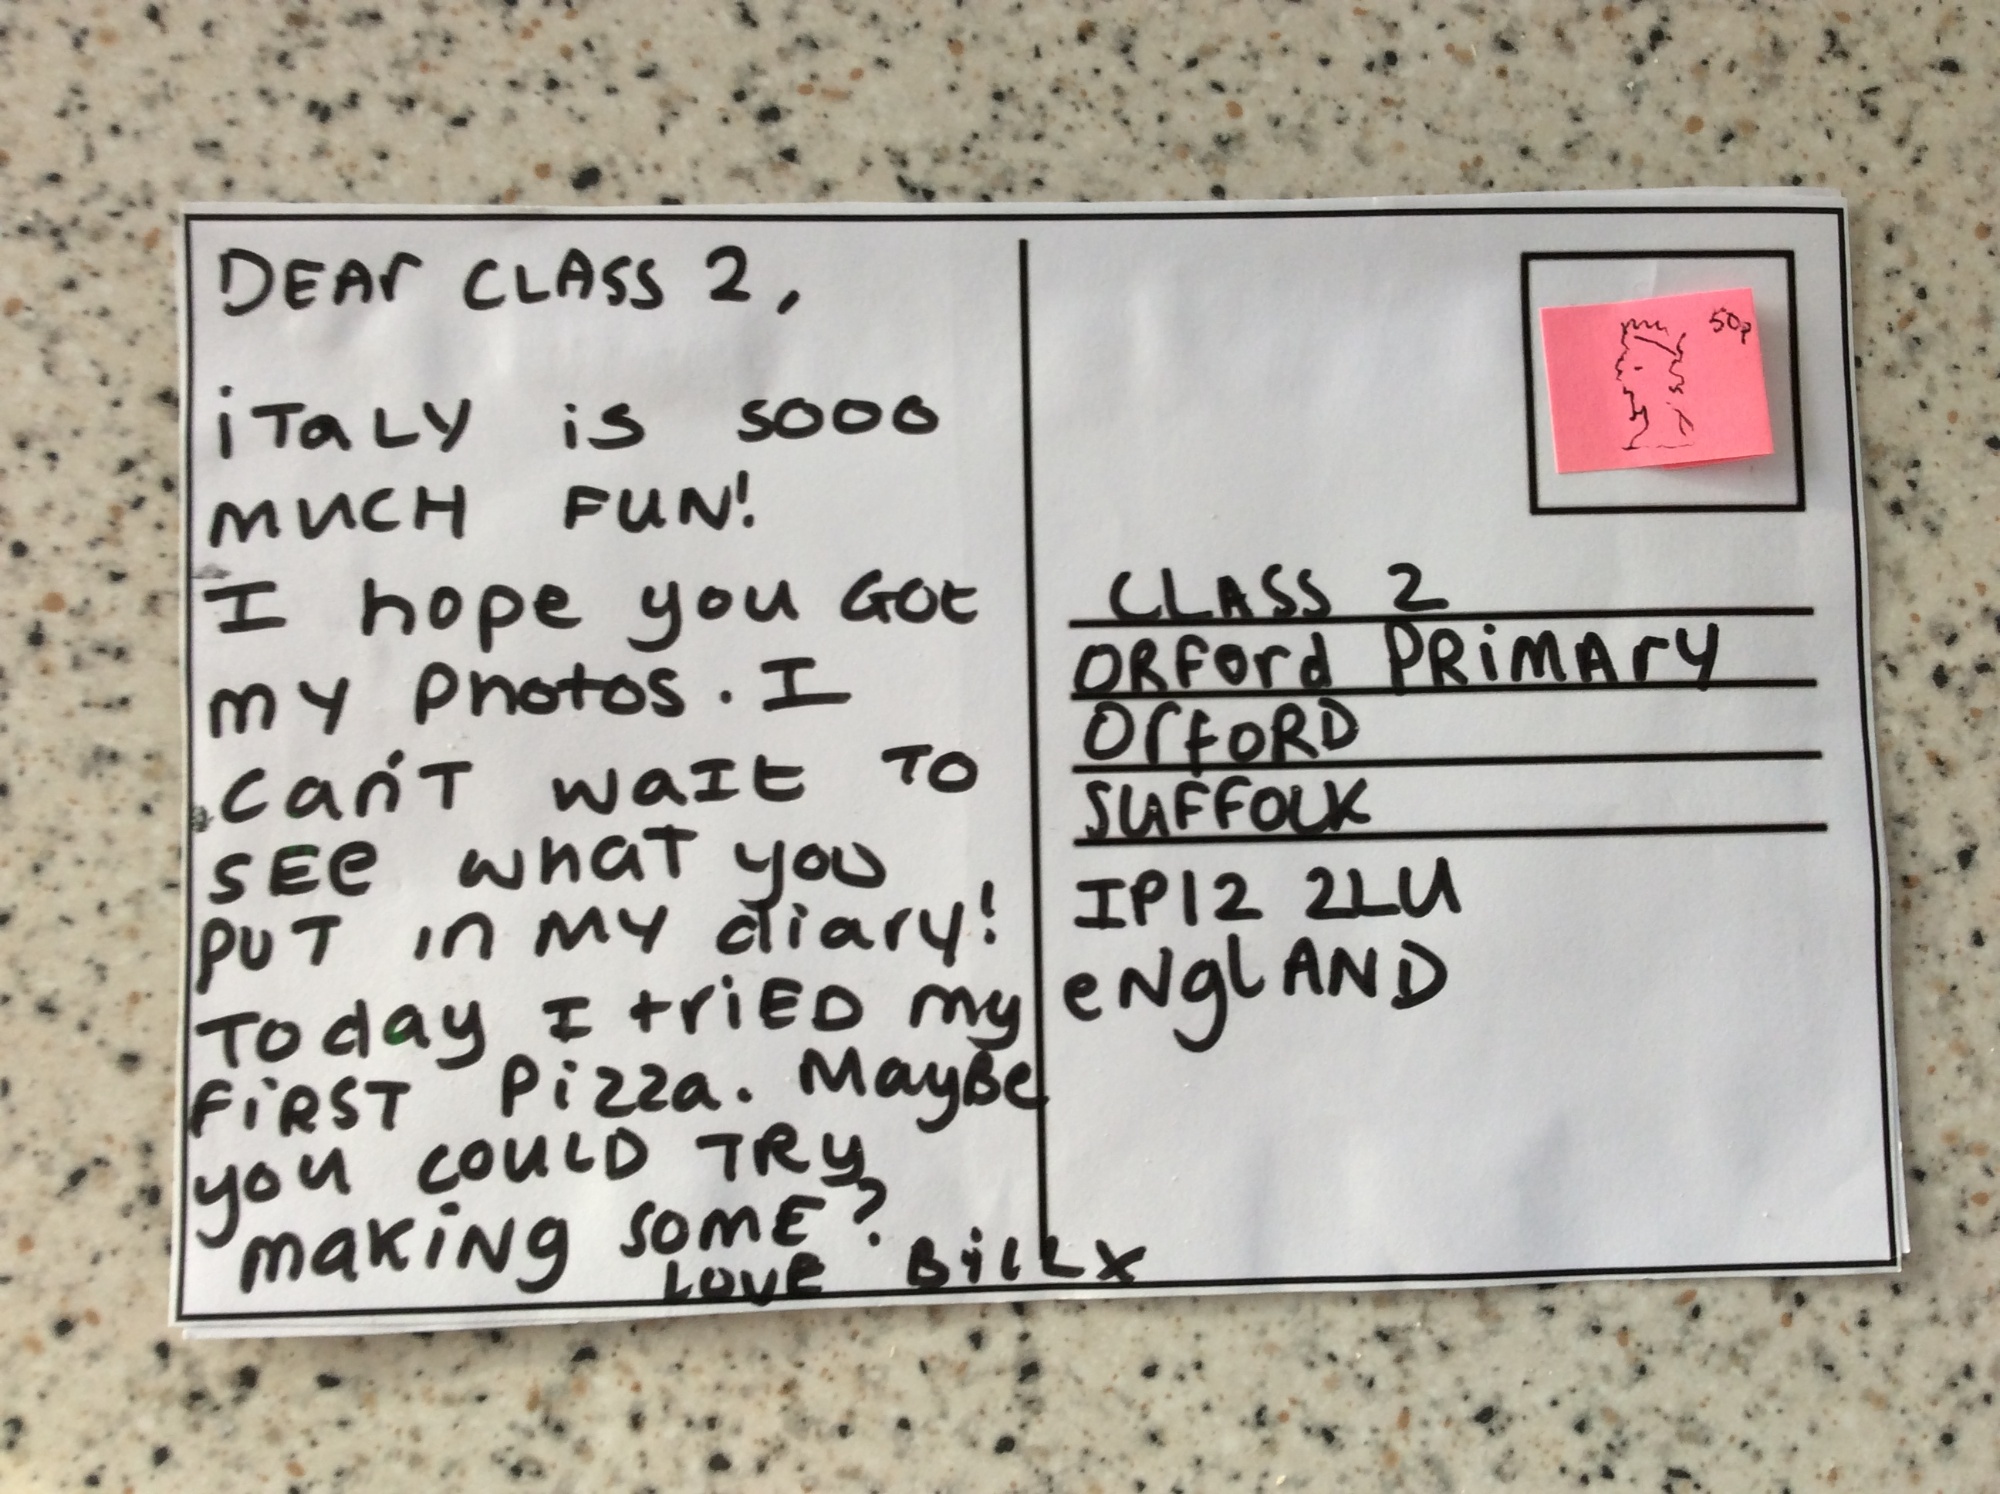 DEAr CLASS 2,
iTaLY is sooo
MUCH FUN!
I hope you GOt
my photos. I
can't waIt TO
sEe whaT you
puT in MY diary!
Today I triED my
FiRST Pizza. MayBe
you COULD TRy
making SOME?
LOVE BiLLx
50p
CLASS 2
ORFord PRiMArY
OrfoRD
SUFFOLK
IP12 2LU
eNglAND